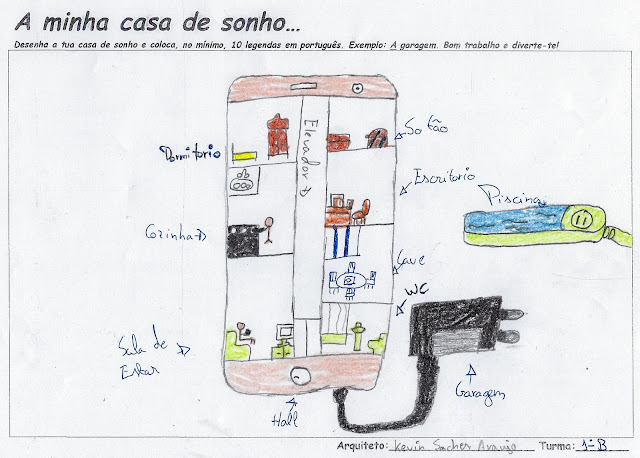 A minha casa de sonho...
Desenha a tua casa de sonho e coloca, no mínimo, 10 legendas em português. Exemplo: A garagem. Bom trabalho e diverte-te!
Elevador
Sotão
Dormitorio
Escritorio
Piscina
Cozinha
Cave
WC
Sala de
Estar
Garagem
Hall
Arquiteto: Kevin Sacher Araujo Turma: 1-B